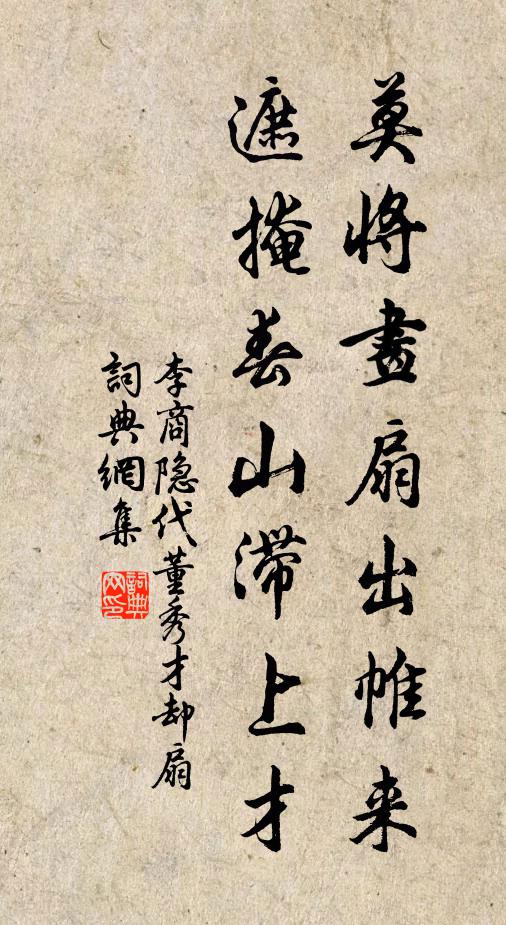 莫將畫扇出帷来
遮掩春山滞上才
李商隐代董秀才却扇
詞典網集
詞典网印